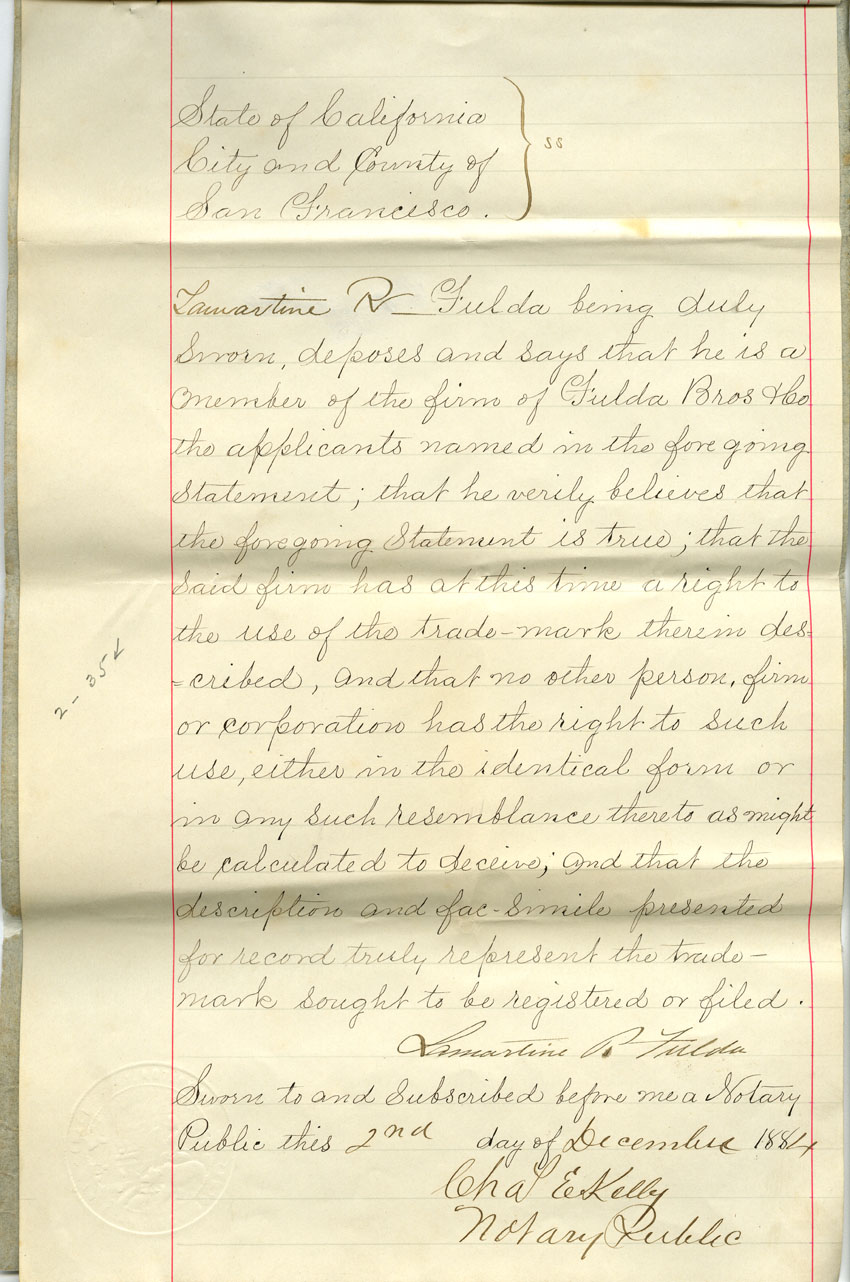 State of California
City and County of
San Francisco. } ss
Lamartine R Fulda being duly
Sworn, deposes and says that he is a
member of the firm of Fulda Bros & Co
the applicants named in the foregoing
Statement; that he verily believes that
the foregoing Statement is true; that the
said firm has at this time a right to
the use of the trade-mark therein des-
-cribed, and that no other person, firm
or corporation has the right to such
use, either in the identical form or
in any such resemblance thereto as might
be calculated to deceive; and that the
description and fac-simile presented
for record truly represent the trade-
mark sought to be registered or filed.
Lamartine R Fulda
Sworn to and Subscribed before me a Notary
Public this 2nd day of December 1884
Chas E Kelly
Notary Public